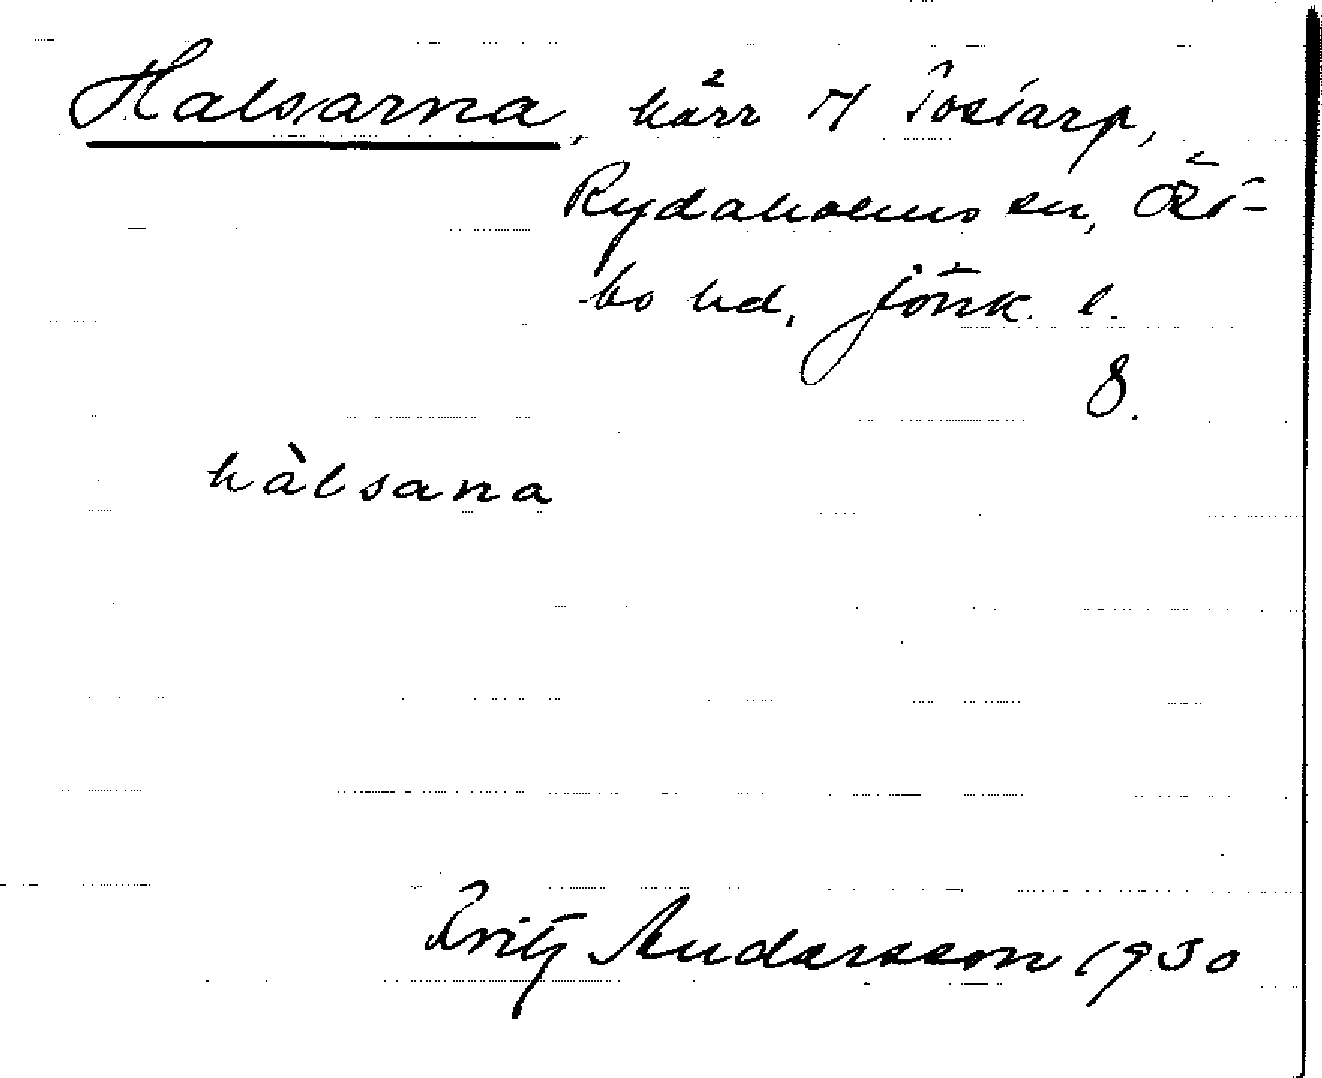 Halsarna, kärr t/ Tostarp,
Rydaholms sn, Öst-
bo hd, Jönk. l.
8.
hàlsana
Fritz Andersson 1930